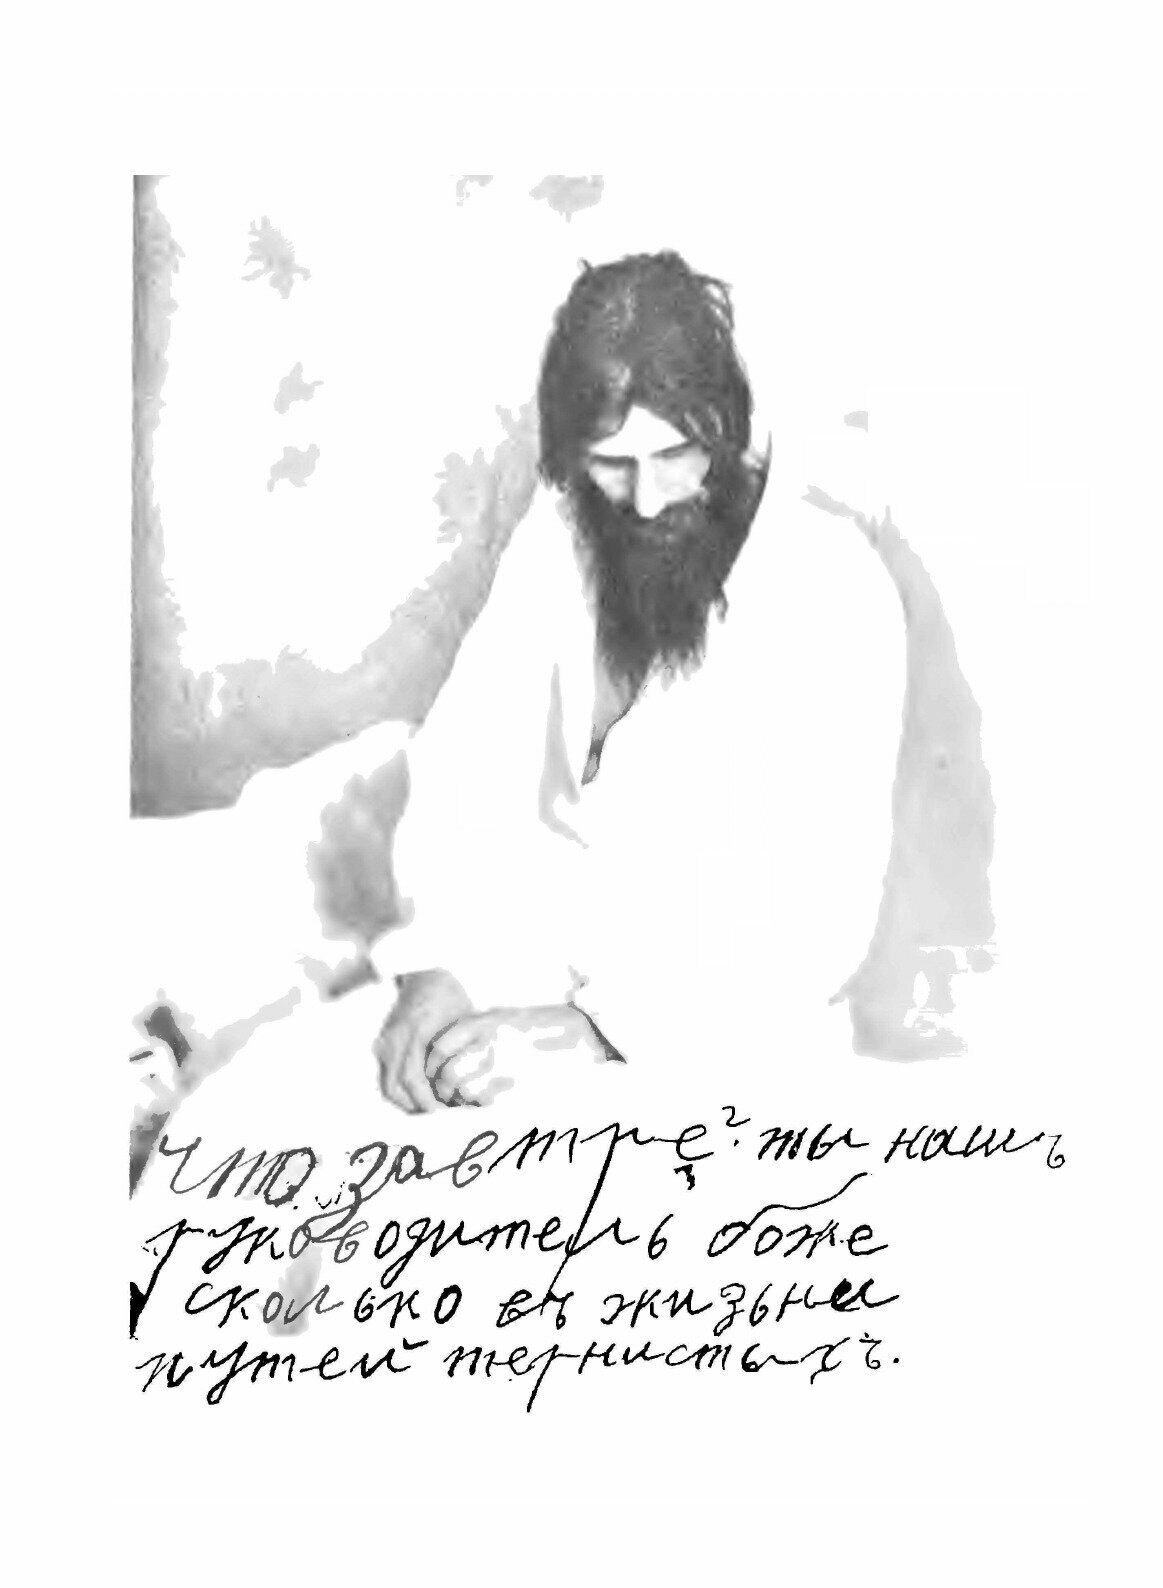 Что завтре? ты нашъ
руководитель боже
сколько въ жизьни
путей тернистыхъ.